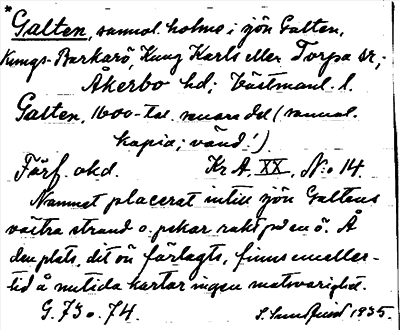 * Galten, sannol. holme i sjön Galten,
Kungs-Barkarö, Kung Karls eller Torpa sr,;
Åkerbo hd; Västmanl. l.
Galten, 1600-tal. senare del (sannol.
kopia; vänd!)
Förf. okd. Kr A. XX, N:o 14.
Namnet placerat intill sjön Galtens
västra strand o. pekar rakt på en ö. Å
den plats, dit ön förlagts, finns emeller-
tid å nutida kartor ingen motsvarighet.
G. 73 o. 74. 1935.